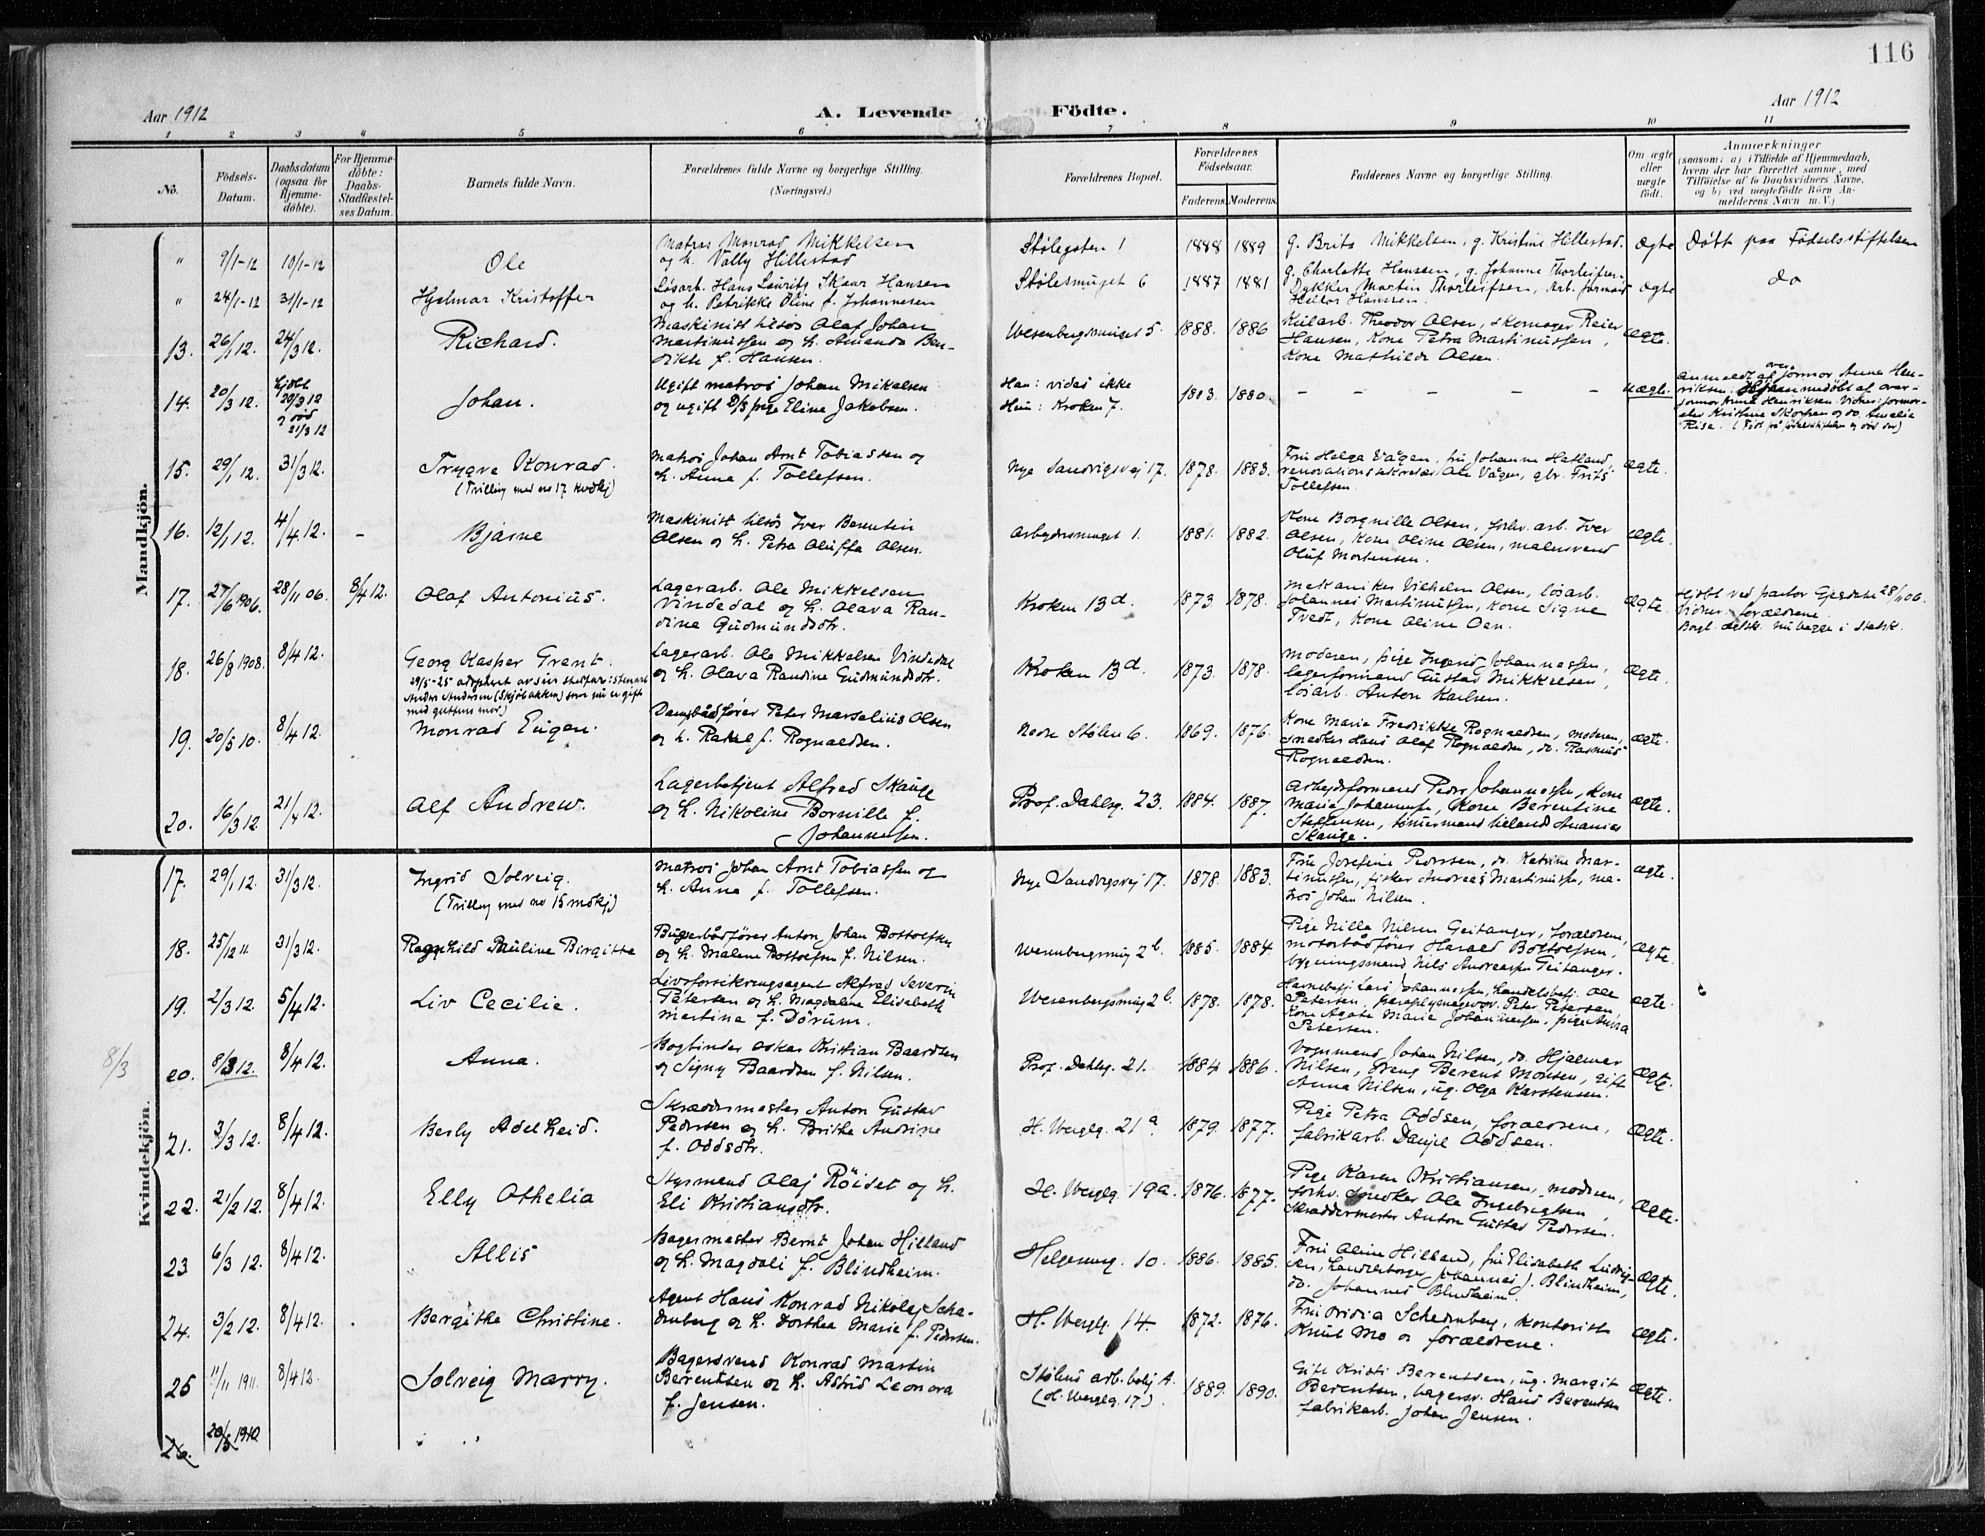 116
Aar 1912 A. Levende Födte. Aar 1912
1 2 3 4 5 6 7 8 9 10 11
No. Födsels-Datum. Daabsdatum (ogsaa för Hjemme-döbte). For Hjemme-döbte: Daabs-Stadfæstel-ses Datum. Barnets fulde Navn. Forældrenes fulde Navne og borgerlige Stilling. (Næringsvei.) Forældrenes Bopæl. Forældrenes Födselsaar. Faderens. Moderens. Faddernes Navne og borgerlige Stilling. Om ægte eller uægte födt. Anmærkninger (saasom: a) i Tilfælde af Hjemmedaab, hvem der har forrettet samme, med Tilföielse af to Daabsvidners Navne, og b) ved uægtefödte Börn An-melderens Navn m. V.)
Mandkjön.
" 9/1-12 10/1-12 Ole Matros Monrad Mikkelsen
og h. Vally Hillestad Stølegaten 1 1888 1889 g. Brita Mikkelsen, g. Kristine Hillestad. Ægte Døbt paa Fødselsstiftelsen
" 24/1-12 31/1-12 Hjalmar Kristoffer Løsarb. Hans Laurits Skaar Hansen
og h. Petrikke Oline f. Johannesen Stølesmuget 6 1887 1881 g. Charlotte Hansen, g. Johanne Thorleifsen
Dykker Martin Thorleifsen, Arb. formand
Hansen. Ægte do
13. 26/1 12. 24/3 12. Richard. Maskinist tilsøs Olaf Johan
Martinussen og h. Amanda Ben-
dikte f. Hansen. Wesenbergsmuget 5. 1888. 1886 Kularb. Theodor Olsen, skomager Reier
Hansen, Kone Petra Martinussen,
Kone Mathilde Olsen. Ægte.
14. 20/3 12. hjdbt 20/3 12 og død 21/3 12 Johan. Ugift matros Johan Mikalsen
og ugift D/S pige Eline Jakobsen. Han: vides ikke
Hun: Kroken 7. 1883. 1880. – – – – – uægte. Anmeldt af over formor Anne Hen-
riksen. Hjemmedøbt af over-
jormor Anne Henriksen. Vidner: jormor-
elev Kristine og do. Amalie
Rise.
15. 29/1 12. 31/3 12. Trygve Konrad.
(Trilling med no 17 kvdkj) Matros Johan Arnt Tobiassen og
h. Anna f. Tollefsen. Nye Sandvigsvej 17. 1878. 1883. Fru Helga Vågen, fru Johanne Hatland,
renovationssekretær Ole Vågen, gbr. Frits
Tollefsen. Ægte.
16. 12/1 12. 4/4 12. – Bjarne Maskinist tilsøs Iver Berentin
Olsen og h. Petra Oluffa Olsen. Arbeidersmuget 1. 1881. 1882. Kone Borgnille Olsen, forhv. arb. Iver
Olsen, Kone Oline Olsen, malersvend
Oluf Mortensen. Ægte.
17. 27/6 1906. 28/11 06. 8/4 12. Olaf Antonius. Lagerarb. Ole Mikkelsen
Vindedal og h. Olava Ran-
dine Gudmundsdtr. Kroken 13 d. 1873 1878. Mekaniker Vilhelm Olsen, løsarb.
Johannes Martinussen, Kone Signe
Tvedt, Kone Oline Oen. Ægte. Hjdbt ved pastor Gjerdete 28/11 06.
Vidner: forældrene.
18. 26/8 1908. 8/4 12. Georg Kasper Grant.
29/5-25 adopteret av sin stedfar: stenarb.
Anders Andersen (Skjolbakken) som nu er gift
med guttens mor) Lagerarb. Ole Mikkelsen Vindedal
og h. Olava Randine Gudmundsdtr. Kroken 13 d. 1873. 1878. Moderen, pige Ingrid Johannessen,
lagerformand Gustav Mikkelsen,
løsarb. Anton Karlsen. Ægte.
19. 20/5 10. 8/4 12. Monrad Eugen. Dampbådfører Peter Marselius Olsen
og h. Rakel f. Rognaldsen. Nedre Stølen 6. 1869. 1876. Kone Marie Fredrikke Rognaldsen, moderen,
snedker Hans Olaf Rognaldsen, do. Rasmus
Rognaldsen. ægte.
20. 16/3 12 21/4 12. Alf Andrew. Lagerbetjent Alfred Skauge
og h. Nikoline Bornille f.
Johannessen. Prof. Dahlsg. 23. 1884. 1887. Arbejdsformand Peder Johannessen, Kone
Marie Johannessen, Kone Berentine
Steffensen, tømmermand Ananias
Skauge. ægte.
Kvindekjön.
17. 29/1 12. 31/3 12. Ingrid Solveig.
(Trilling med no 15 mdkj) Matros Johan Arnt Tobiassen og
h. Anna f. Tollefsen. Nye Sandvigsvej 17. 1878. 1883. Fru Josefine Pedersen, do. Katrine Mar-
tinussen, fisker Andreas Martinussen, ma-
tros Johan Nilsen. ægte.
18. 25/12 11 31/3 12. Ragnhild Pauline Birgitte Bugserbådfører Anton Johan Bottolfsen
og h. Malene Bottolfsen f. Nilsen. Wesenbergsmug 2 b. 1885. 1884. Pige Nilla Nilsen Geitanger, forældrene,
motorbådfører Harald Bottolfsen,
bygningsmand Nils Andreassen Geitanger. ægte.
19. 2/3 12. 5/4 12. Liv Cecilie. Livsforsikringsagent Alfred Severin
Petersen og h. Magdalene Elisabeth
Martina f. Dörum. Wesenbergsmug 2 b. 1878. 1878. Havnebetj. Lars Johannessen, handelsbetj. Ole
Petersen, Peter Petersen,
Kone Agate Marie Johannessen. pige Anna
Petersen. ægte.
8/3 20. 8/3 12. 8/4 12. Anna. Bogbinder Oskar Kristian Baardsen
og Signy Baardsen f. Nilsen. Prof. Dahlsg. 21. 1884 1886. Vognmand Johan Nilsen, do. Hjalmar
Nilsen, dreng Berent Monsen, gift
Anna Nilsen, ug. Olga Karstensen. Ægte.
21. 3/3 12. 8/4 12. Berly Adelheid. Skræddermester Anton Gustav
Pedersen og h. Brithe Andrine
f. Oddsdtr. H. Wergelg. 21 a. 1879. 1877. Pige Petra Oddsen, forældrene,
fabrikarb. Daniel Oddsen. Ægte.
22. 21/2 12. 8/4 12. Elly Othelia Styrmand Olaj Röiset og h.
Eli Kristiansdtr. H. Wergelg. 19 a. 1876. 1877. Pige Karen Kristiansen, moderen,
forhv. snedker Ole Ingebrigtsen,
skræddermester Anton Gustav Pedersen. Ægte.
23 6/3 12. 8/4 12. Allis Bagermester Bernt Johan Hilland
og h. Magdali f. Blindheim. Helgesmug. 10. 1886. 1885. Fru Oline Hilland, fru Elisabeth Ludvig-
sen, handelsborger Johannes J. Blindheim,
do. Johannes Blindheim. Ægte.
24. 3/2 12. 8/4 12. Bergithe Christine. Agent Hans Konrad Nikolaj Scha-
denberg og h. Dorthea Marie f. Pedersen. H. Wergelg. 14. 1872. 1876. Fru Ovidia Schadenberg, kontorist
Knut Mo og forældrene. Ægte.
25 11/11 1911. 8/4 12. Solveig Marry. Bagersvend Konrad Martin
Berentsen og h. Astrid Leonora
f. Jensen. Stølens arb. bolig A.
(H. Wergelg. 17). 1889. 1890. Gift Kristi Berentsen, ug. Margit
Berentsen, bagersv. Hans Berentsen
fabrikarb. Johan Jensen. Ægte.
26. 20/5 1910